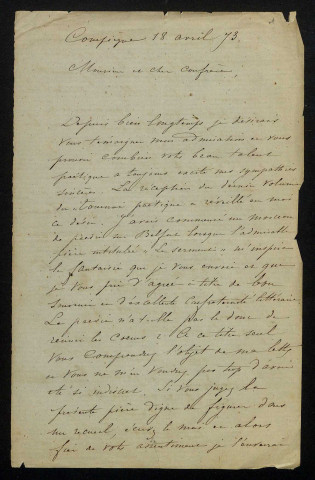 Compiègne 18 avril 73.
Monsieur et cher confrère,
Depuis bien longtemps je désirais
vous témoigner mon admiration et vous
prouver combien votre beau talent
poétique a toujours excité mes sympathies
sincères. La réception du dernier volume
du tournoi poétique a réveillé en moi
ce désir. J'avais commencé un morceau
de poésie sur Belfort lorsque l'admirable
pièce intitulée « Le serment » m'inspira
la fantaisie que je vous envoie et que
je vous prie d'agréer à titre de bon
souvenir et d'excellente confraternité littéraire.
La poésie n'a-t-elle pas le don de
réunir les coeurs ? A ce titre seul
vous comprendrez l'objet de ma lettre
et vous ne m'en voudrez pas trop d'avoir
été si indiscret. Si vous jugez la
présente pièce digne de figurer dans
un recueil, écrivez le moi et alors
fier de votre assentiment je l'enverrai